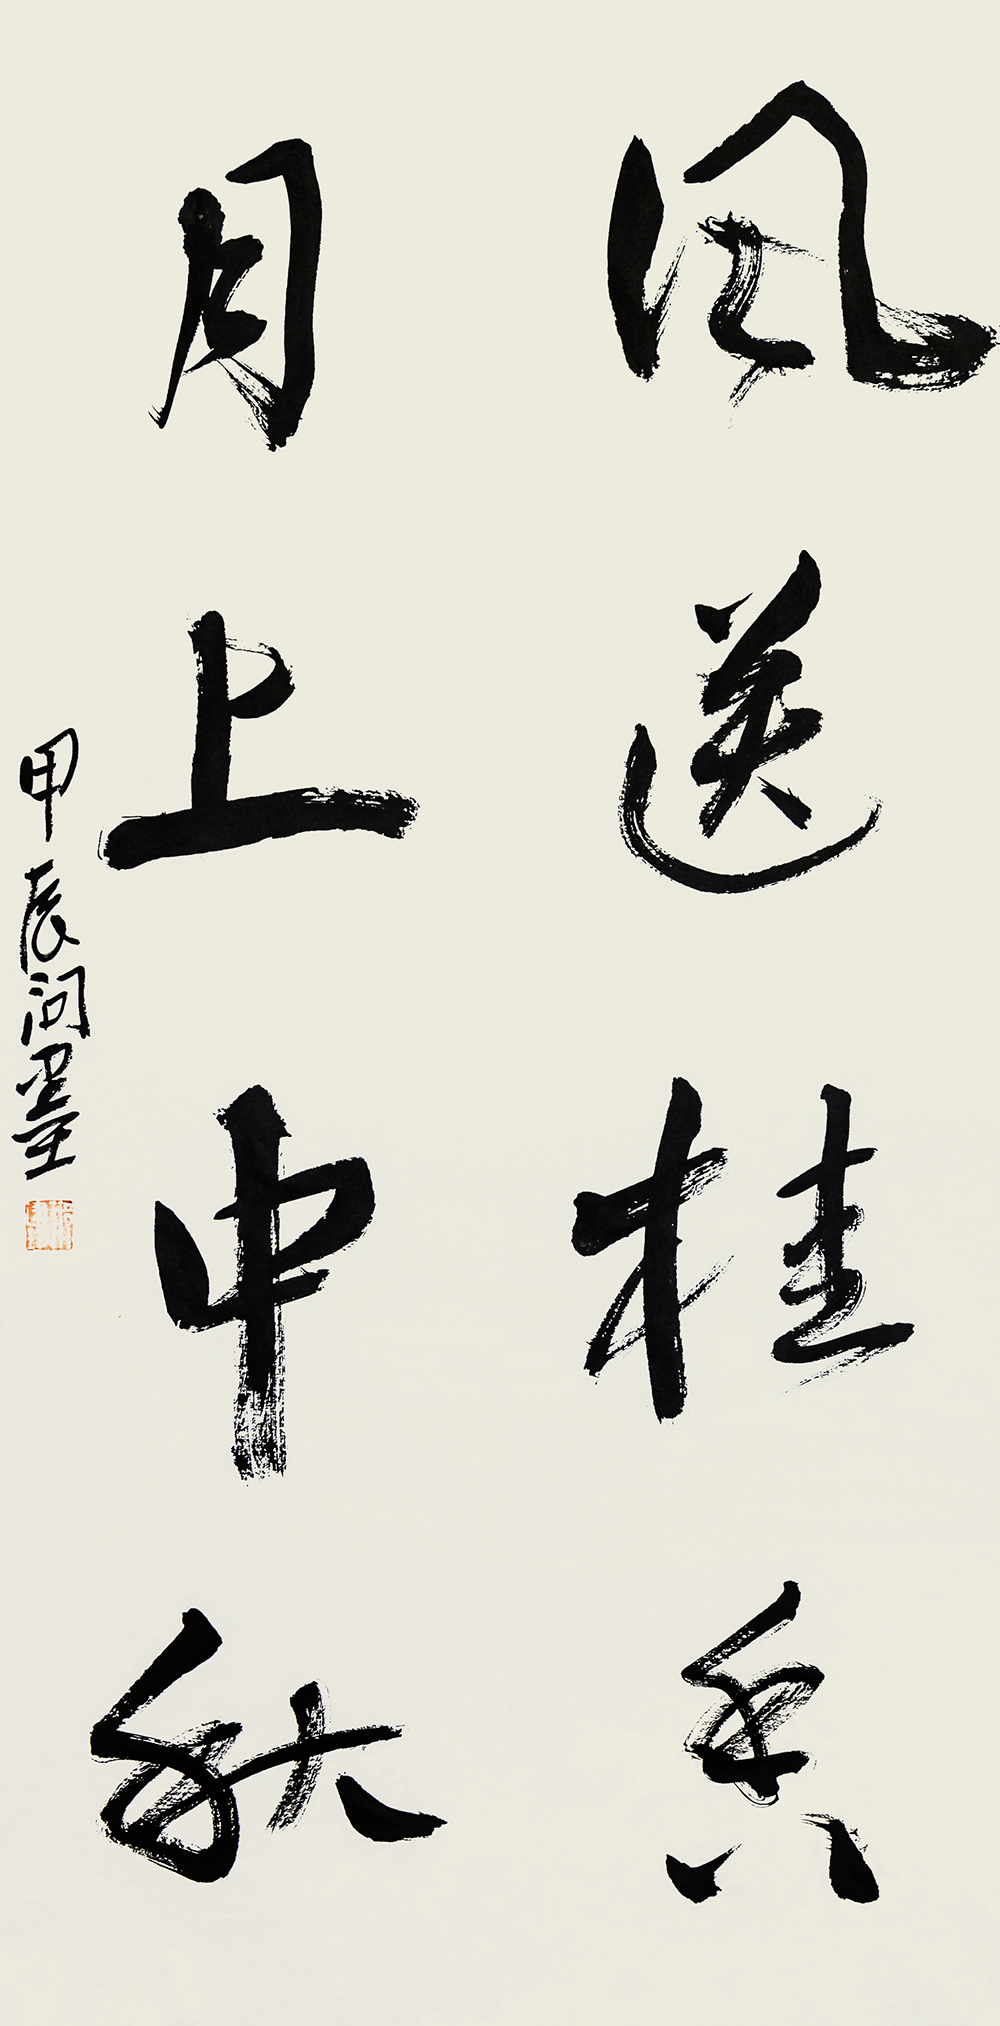 风送桂香
月上中秋
甲辰问墨